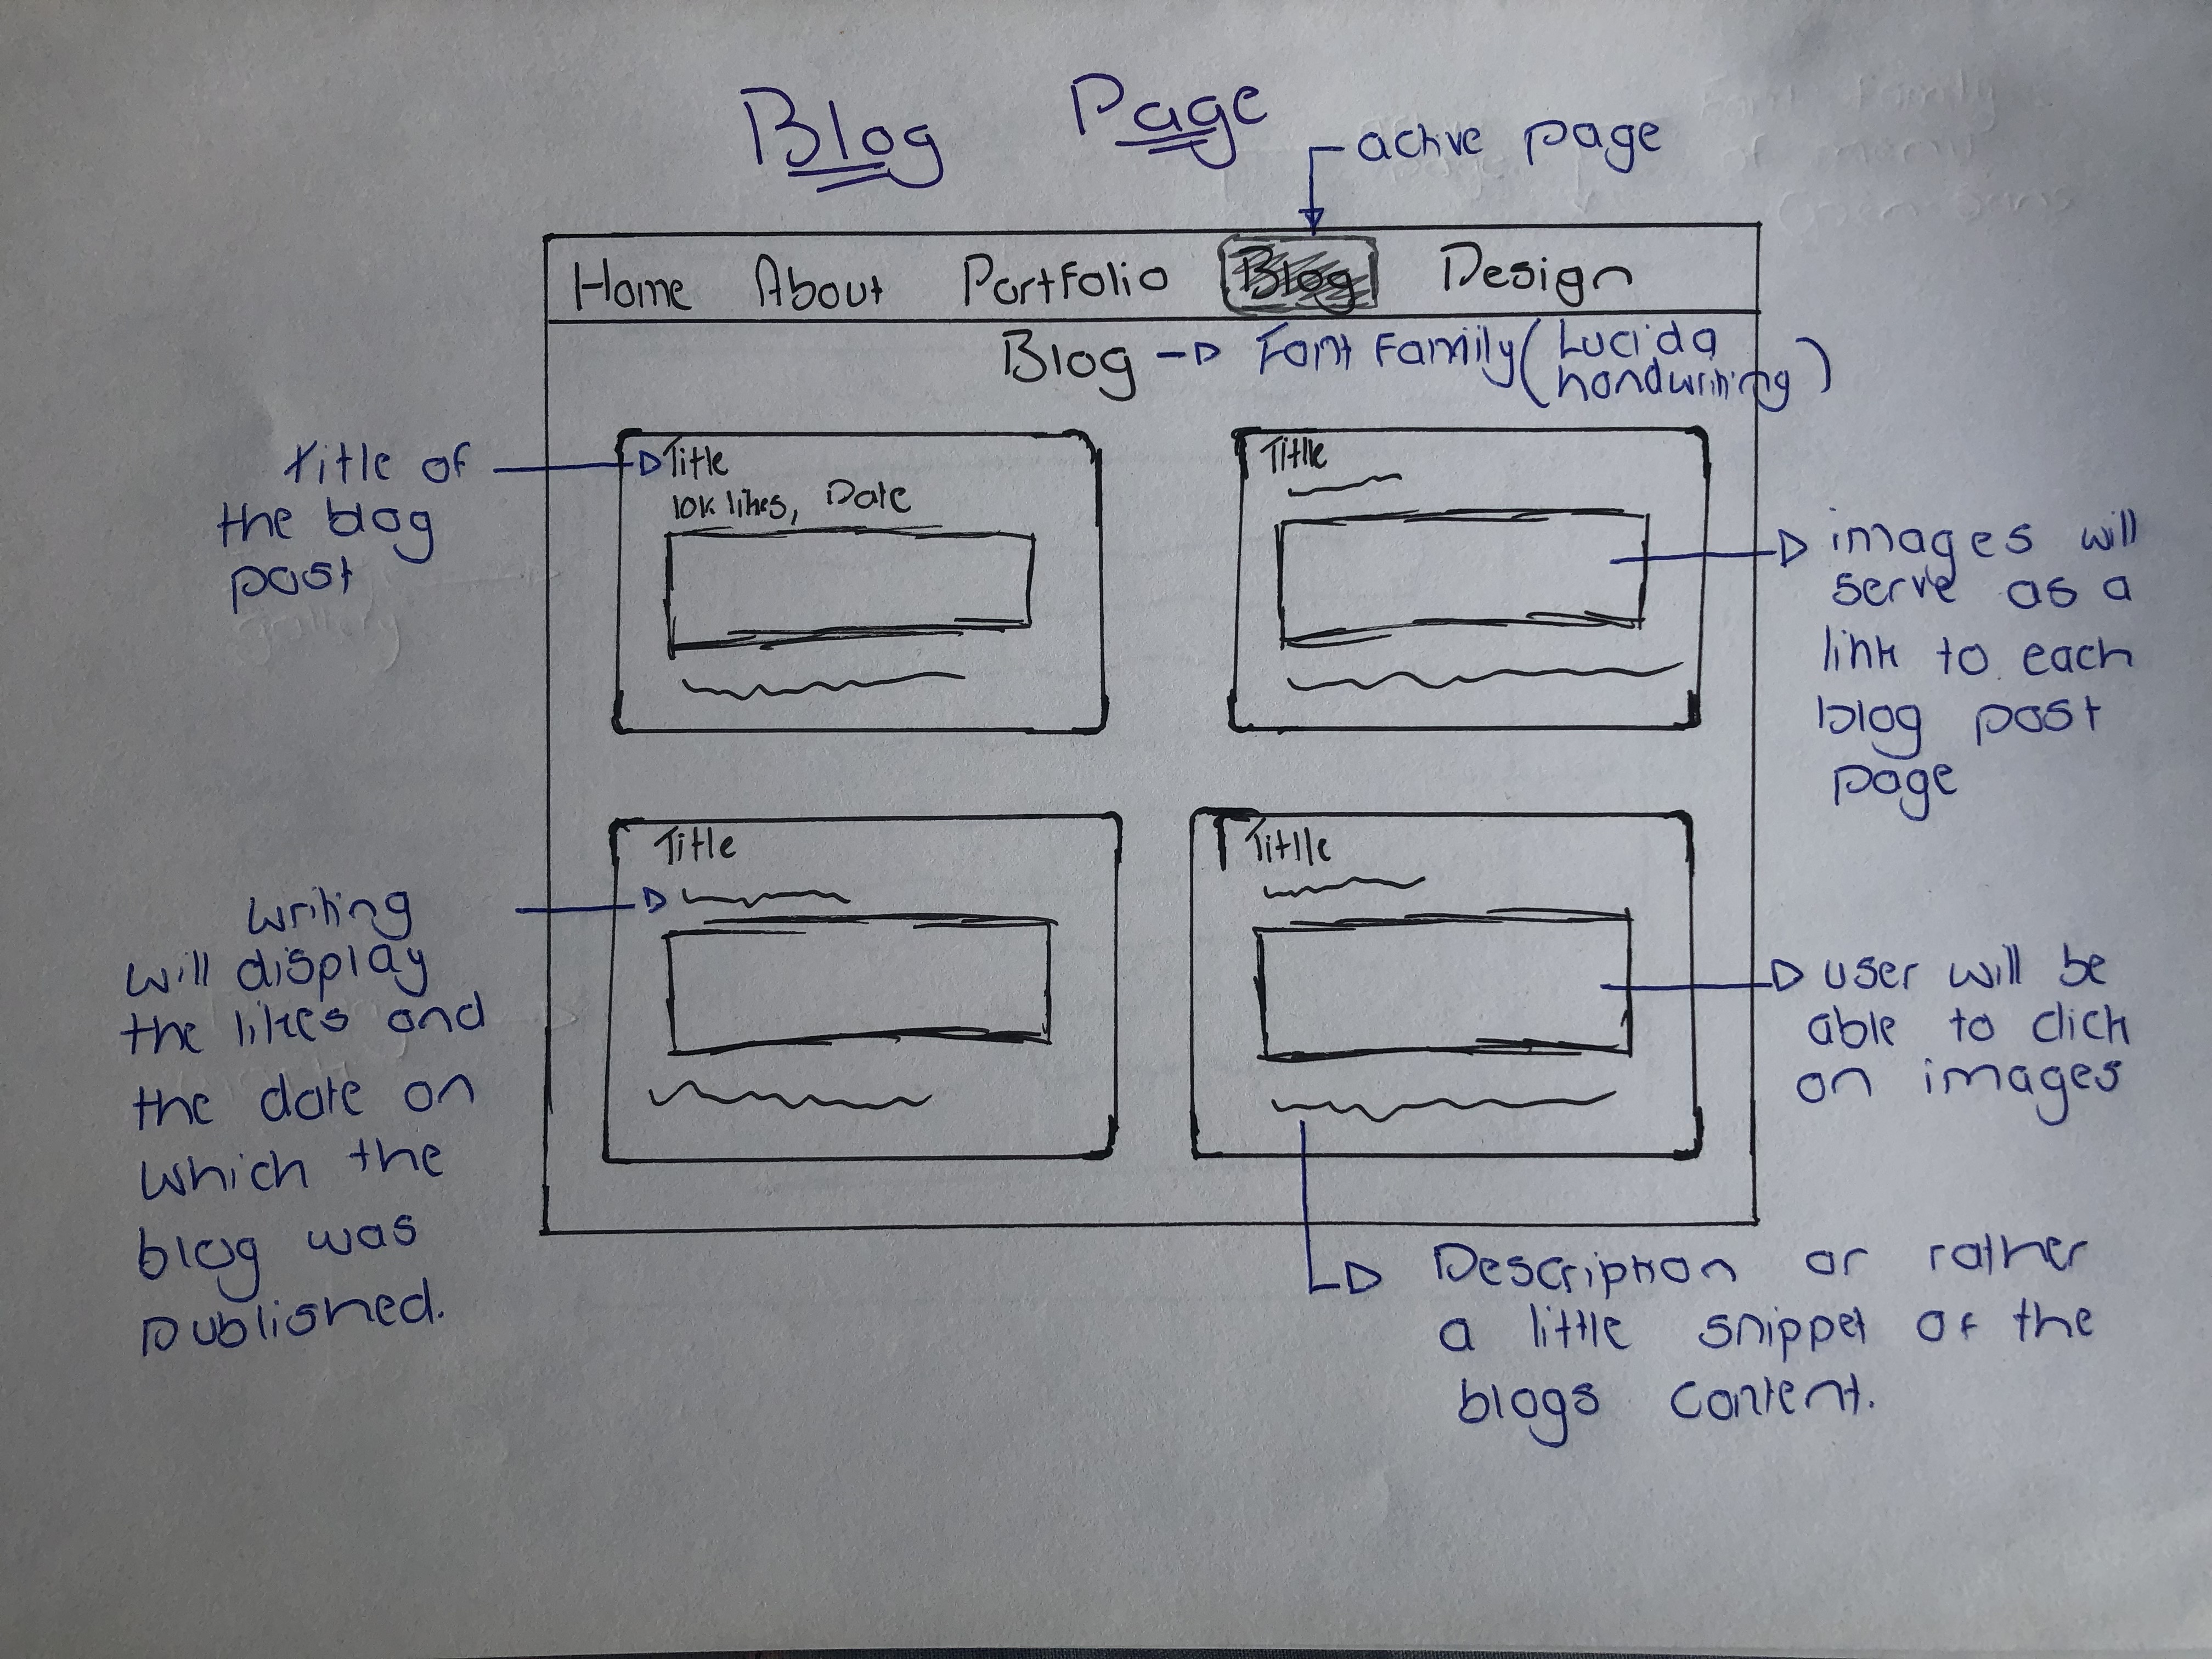 Blog Page
active page
Home About Portfolio Blog Design
Blog Font Family (Lucida
handwriting)
Title of
the blog
post
Title
10k likes, Date
Title
images will
serve as a
link to each
blog post
page
Title
Titlle
writing
will display
the likes and
the date on
which the
blog was
published.
user will be
able to click
on images
Description or rather
a little snippet of the
blogs content.